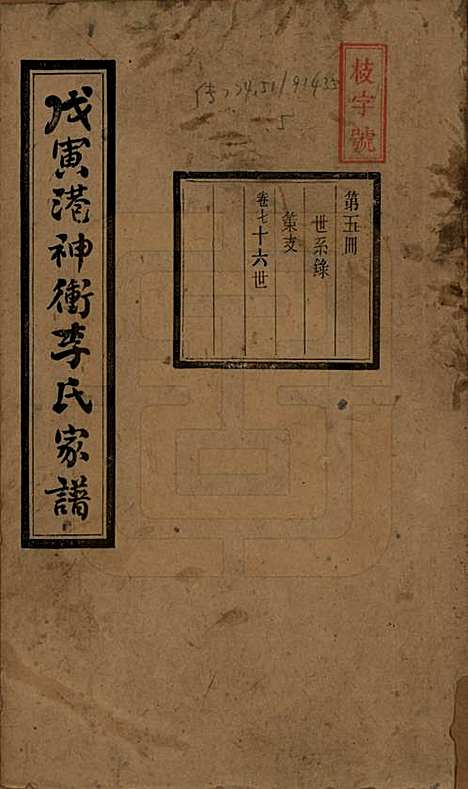 枝字號
傳724.51/91435
5
第五冊
世系錄
策支
卷七十六世
戊寅港神衝李氏家譜